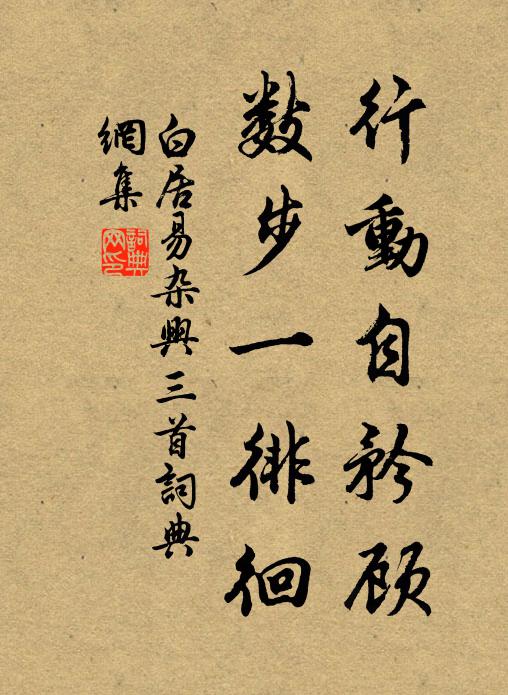 行動自矜顧
數步一徘徊
白居易杂興三首詞典
網集
詞典
网印